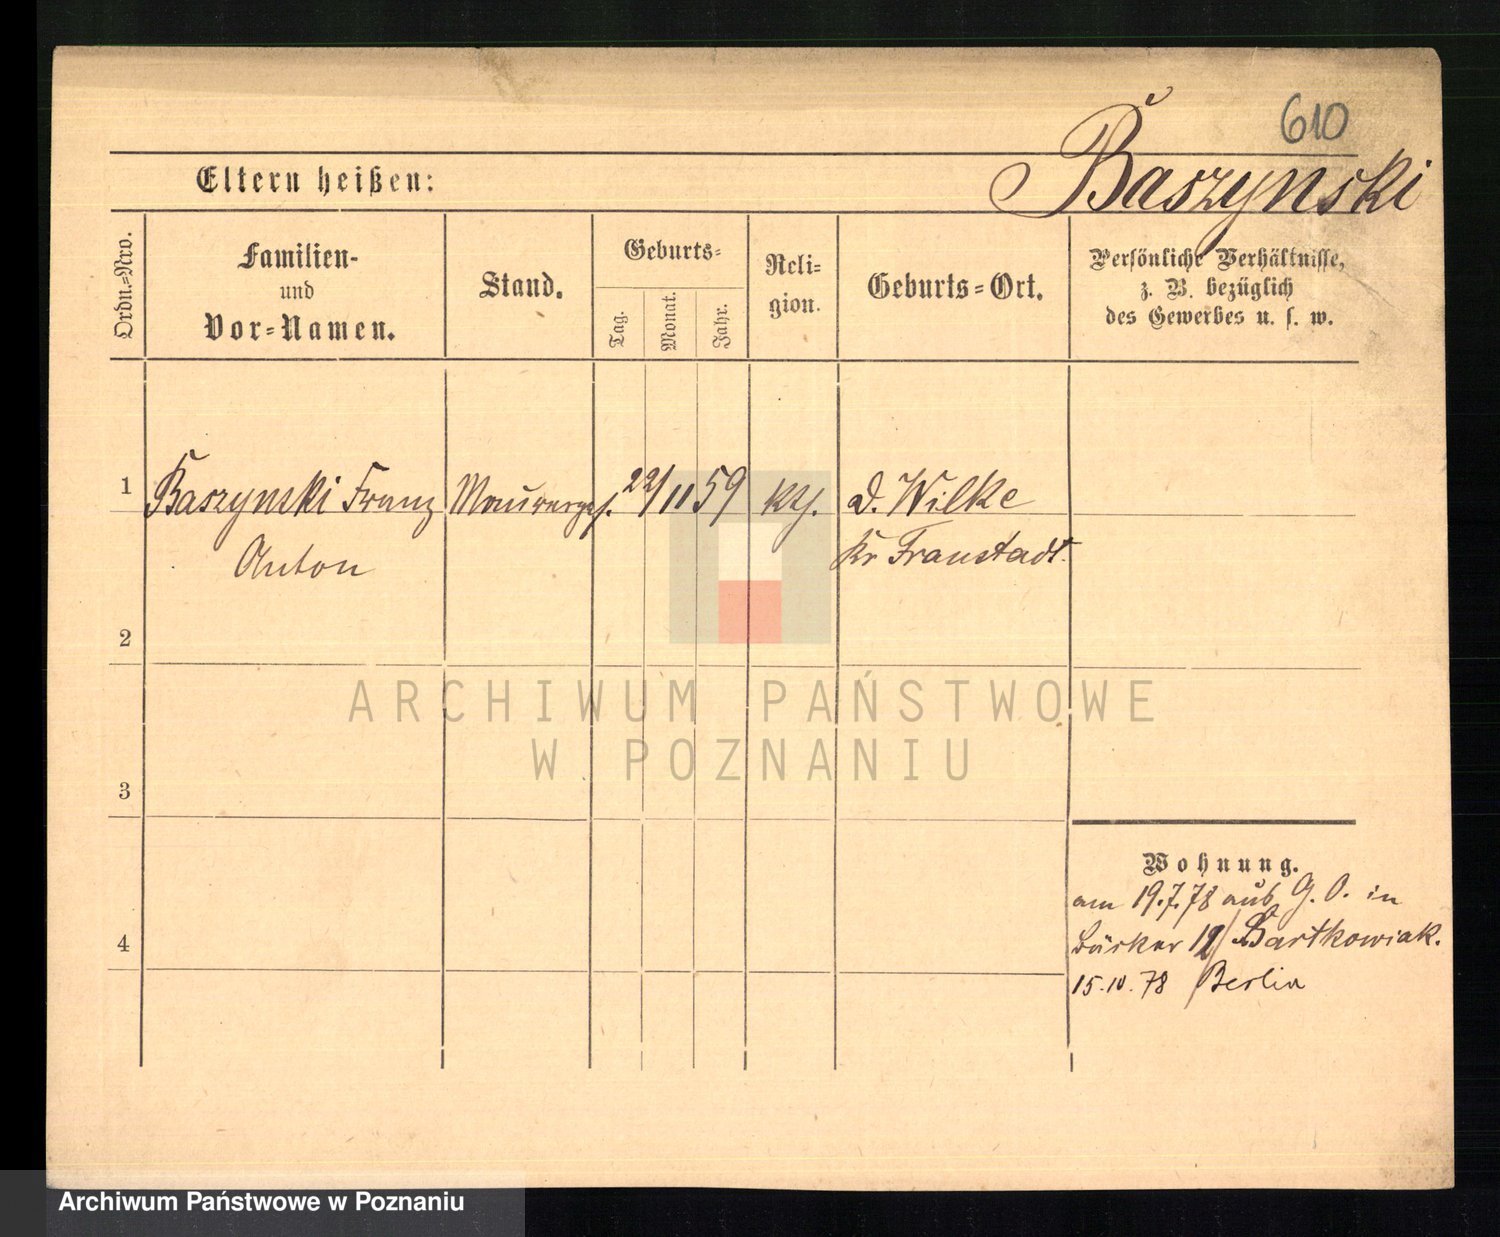 610
Baszynski
Eltern heißen:
Ordn.-Nro.
Familien-
und
Vor-Namen.
Stand.
Geburts-
Tag.
Monat.
Jahr.
Reli-
gion.
Geburts-Ort.
Persönliche Verhältnisse,
z. B. bezüglich
des Gewerbes u. s. w.
1
Baszynski Franz
Anton
Maurerges.
22/11 59
kth.
D. Wilke
Kr Fraustadt.
2
3
4
Wohnung.
am 19.7.78 aus G. O. in
12/ Bartkowiak.
15.10.78 Berlin
ARCHIWUM PAŃSTWOWE
W POZNANIU
Archiwum Państwowe w Poznaniu